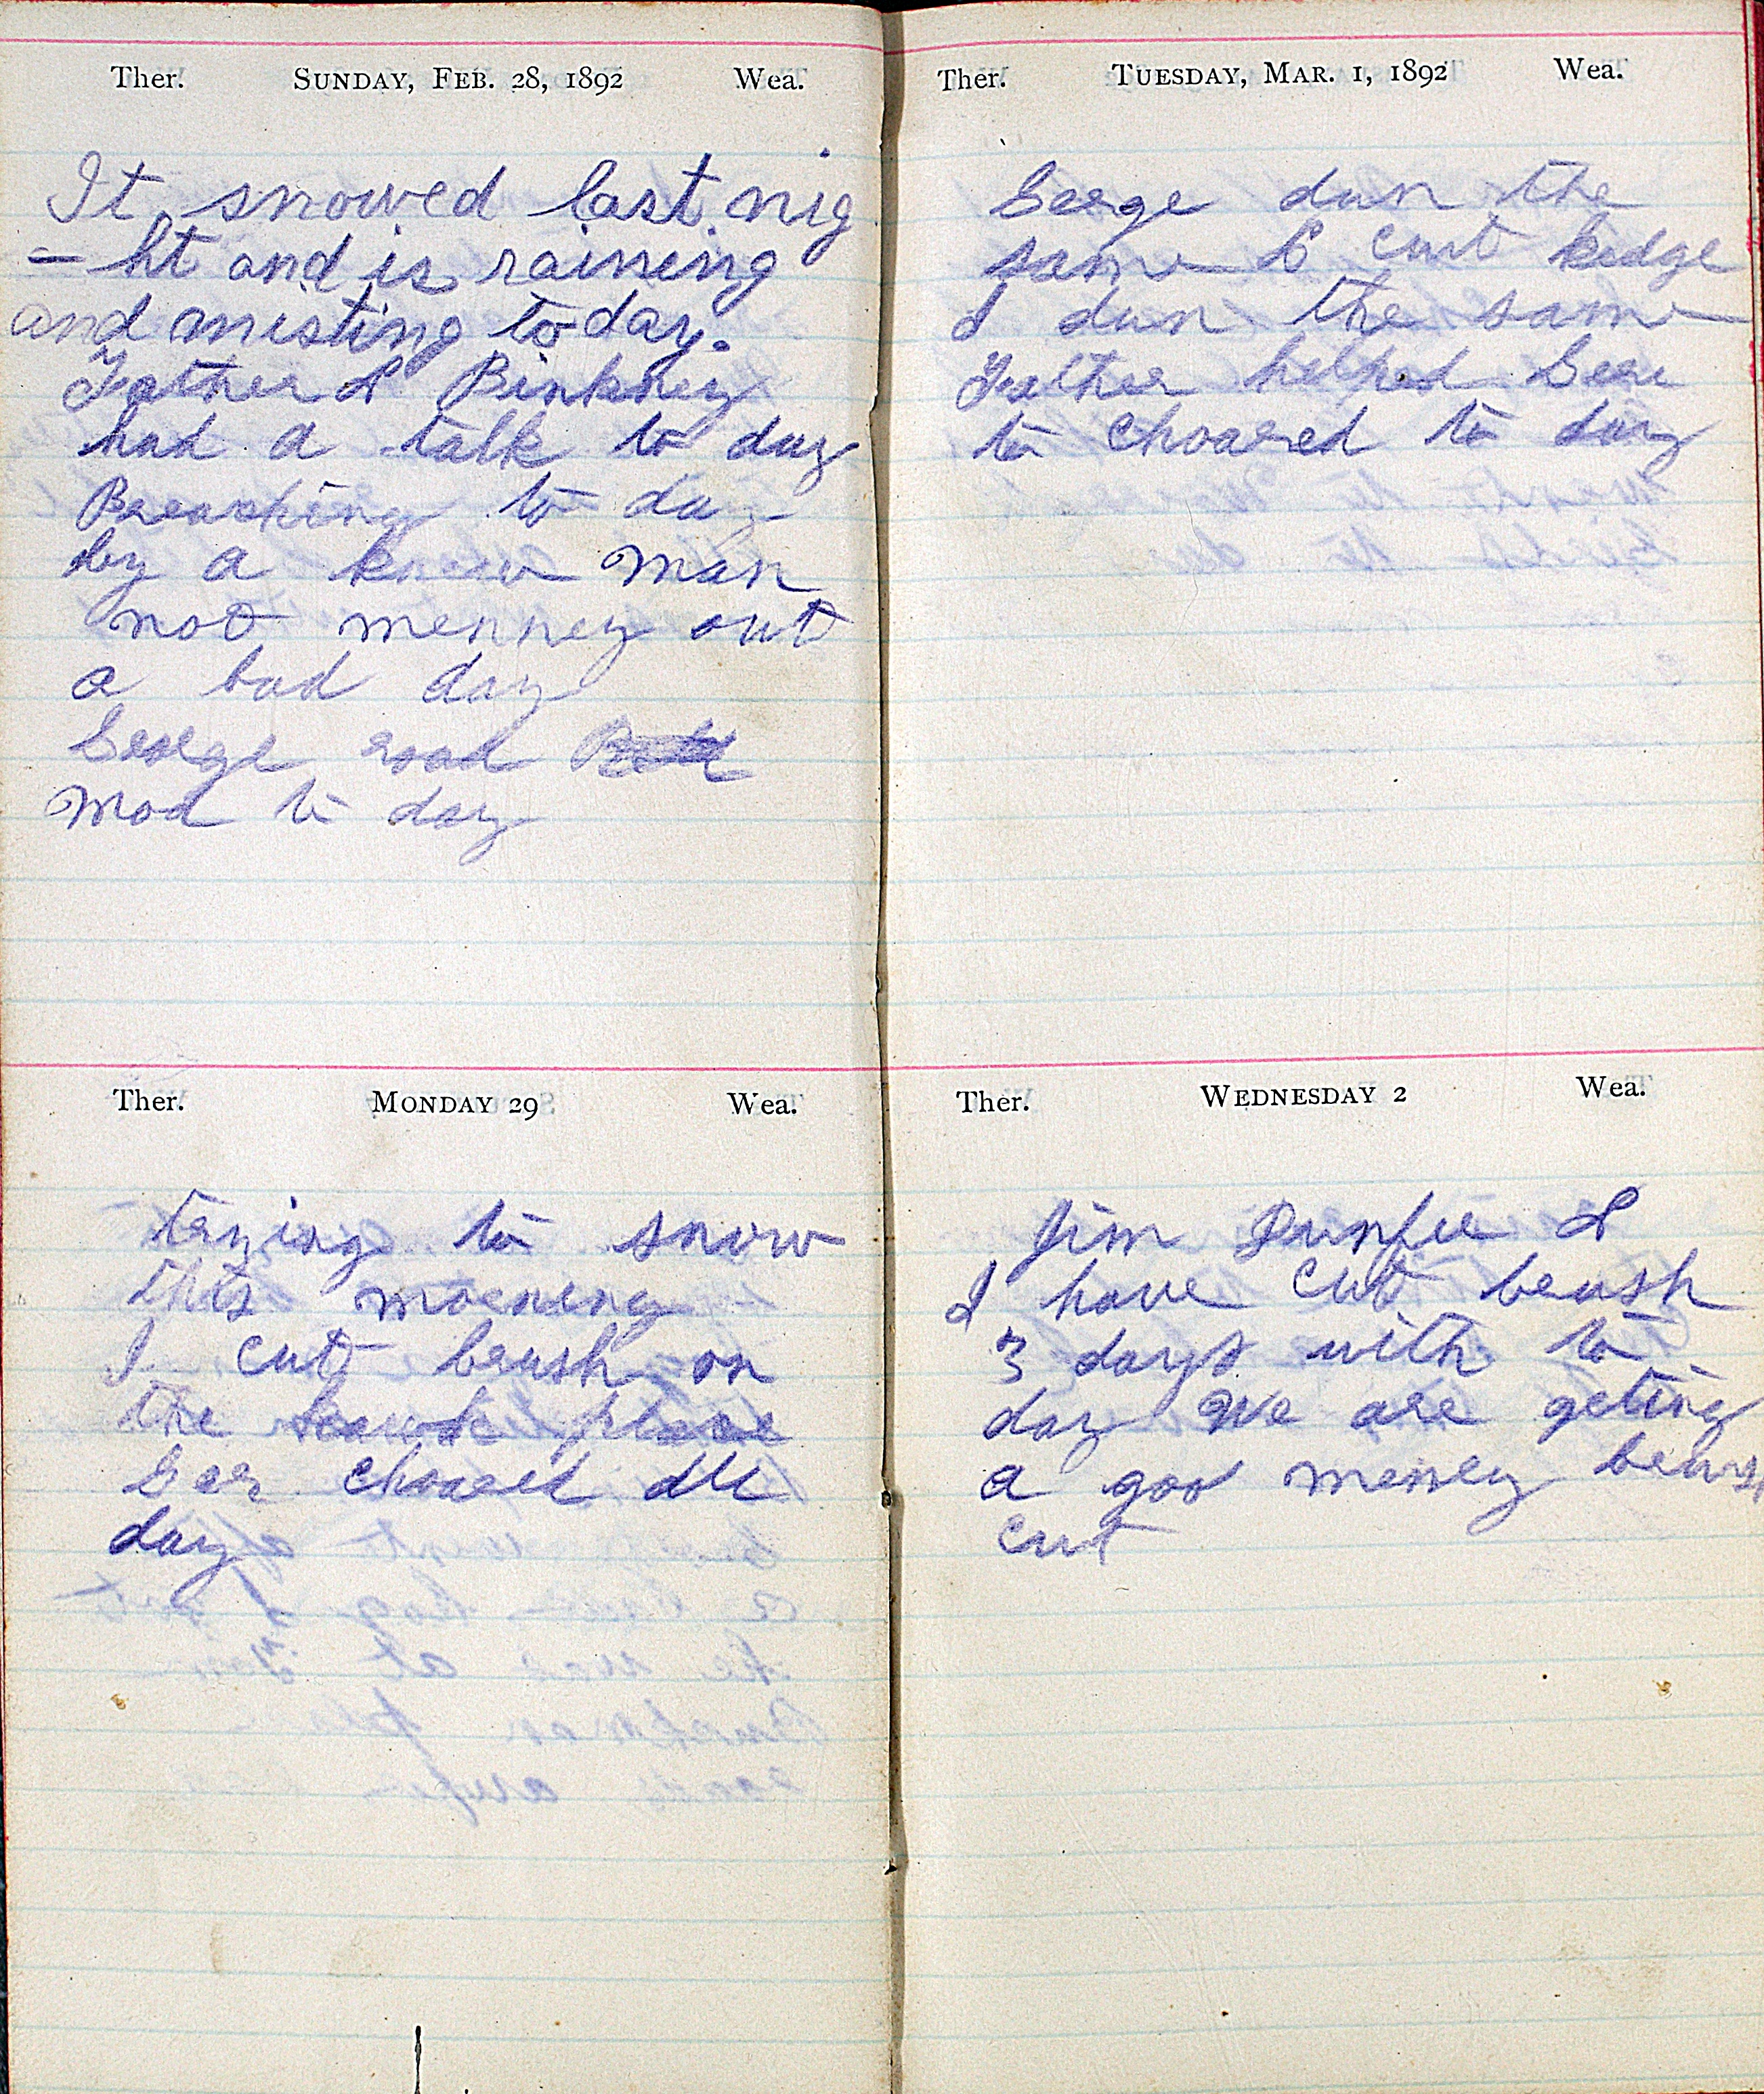 Ther. SUNDAY, FEB. 28, 1892 Wea.
It snowed last nig
- ht and is raineing
and misting to day.
Father & Binkney
had a talk to day
Preaching to day
by a know man
not menney out
a bad day
George road
Mod to day
Ther. MONDAY 29 Wea.
trying to snow
this morning
I cut brush on
the place
Geo choared all
day
Ther. TUESDAY, MAR. 1, 1892 Wea.
George dun the
same & cut kedge
I dun the same
Father helped Geo
to choared to day
Ther. WEDNESDAY 2 Wea.
Jim Dunfee &
I have cut brush
3 days with to
day We are geting
a goo menney
cut